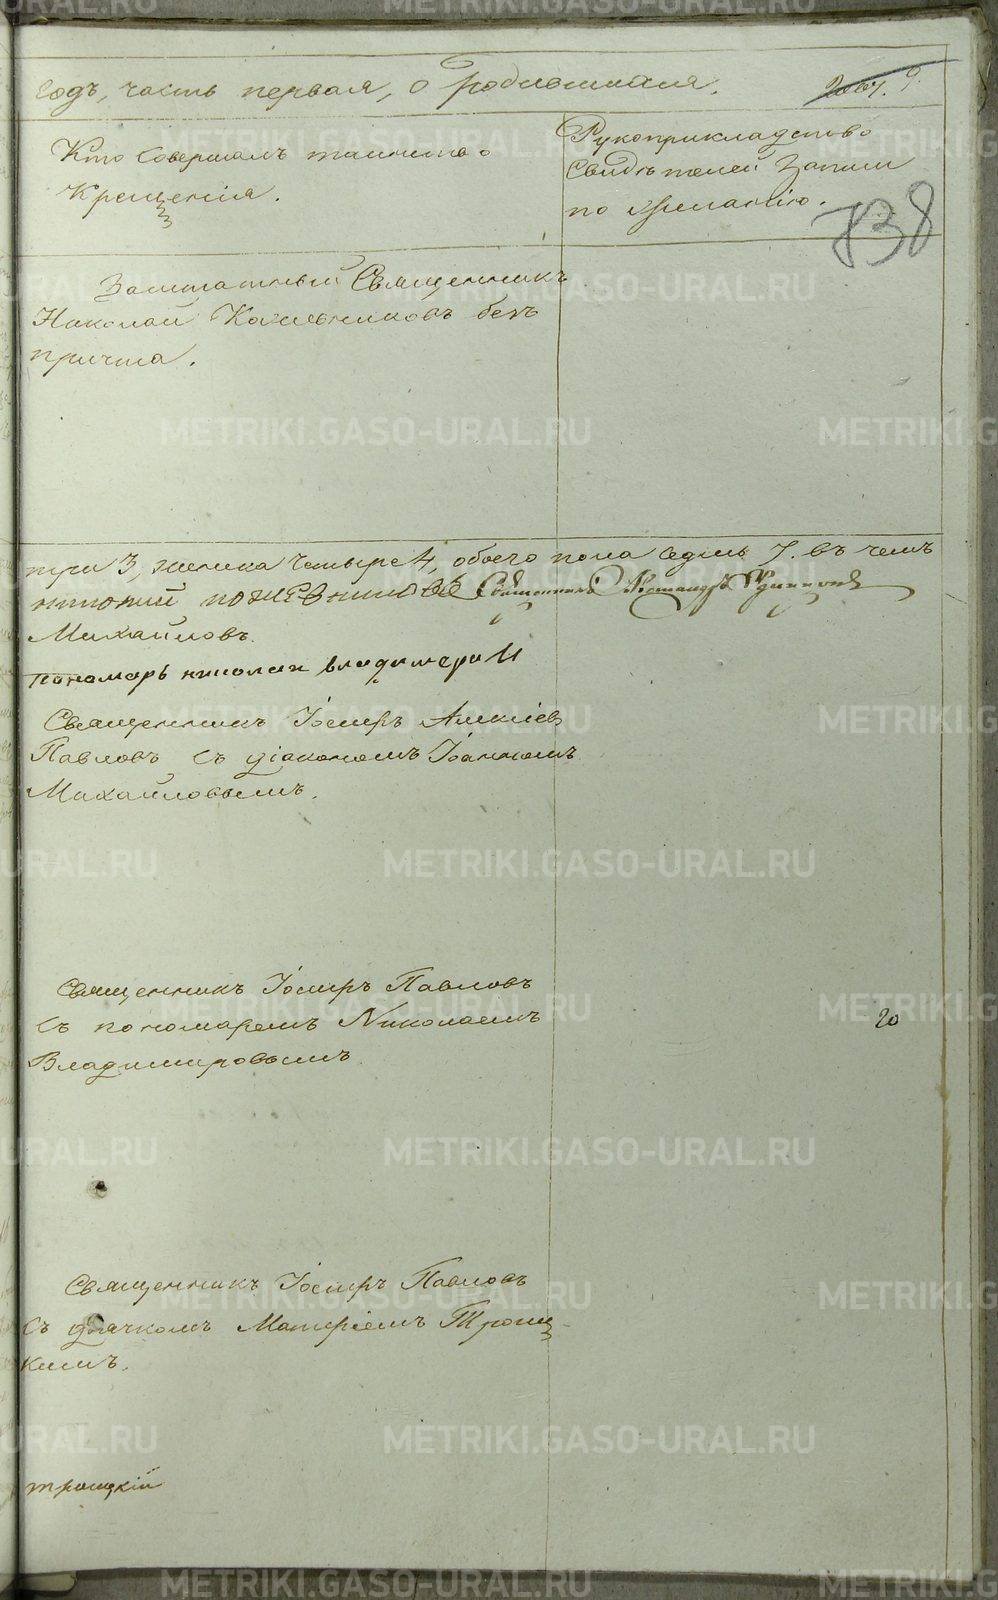 годъ, часть первая, о родившихся. 9.
Кто совершалъ таинство
Крещенія.
Рукоприкладство
свидѣтелей записи
по желанію.
738
Заштатный Священникъ
Николай безъ
причта.
три 3, женска четыре 4, обоего пола седмь 7. въ чемъ
Священникъ
Михайловъ.
пономарь николай владимеровъ
Священникъ Іосифъ Алексіевъ
Павловъ съ діакономъ Іоанномъ
Михайловымъ.
Священникъ Іосифъ Павловъ
съ пономаремъ Николаемъ
Владимировымъ.
20
Священникъ Іосифъ Павловъ
съ дьячкомъ Матфіемъ Троиц-
кимъ.
троицкій
METRIKI.GASO-URAL.RU